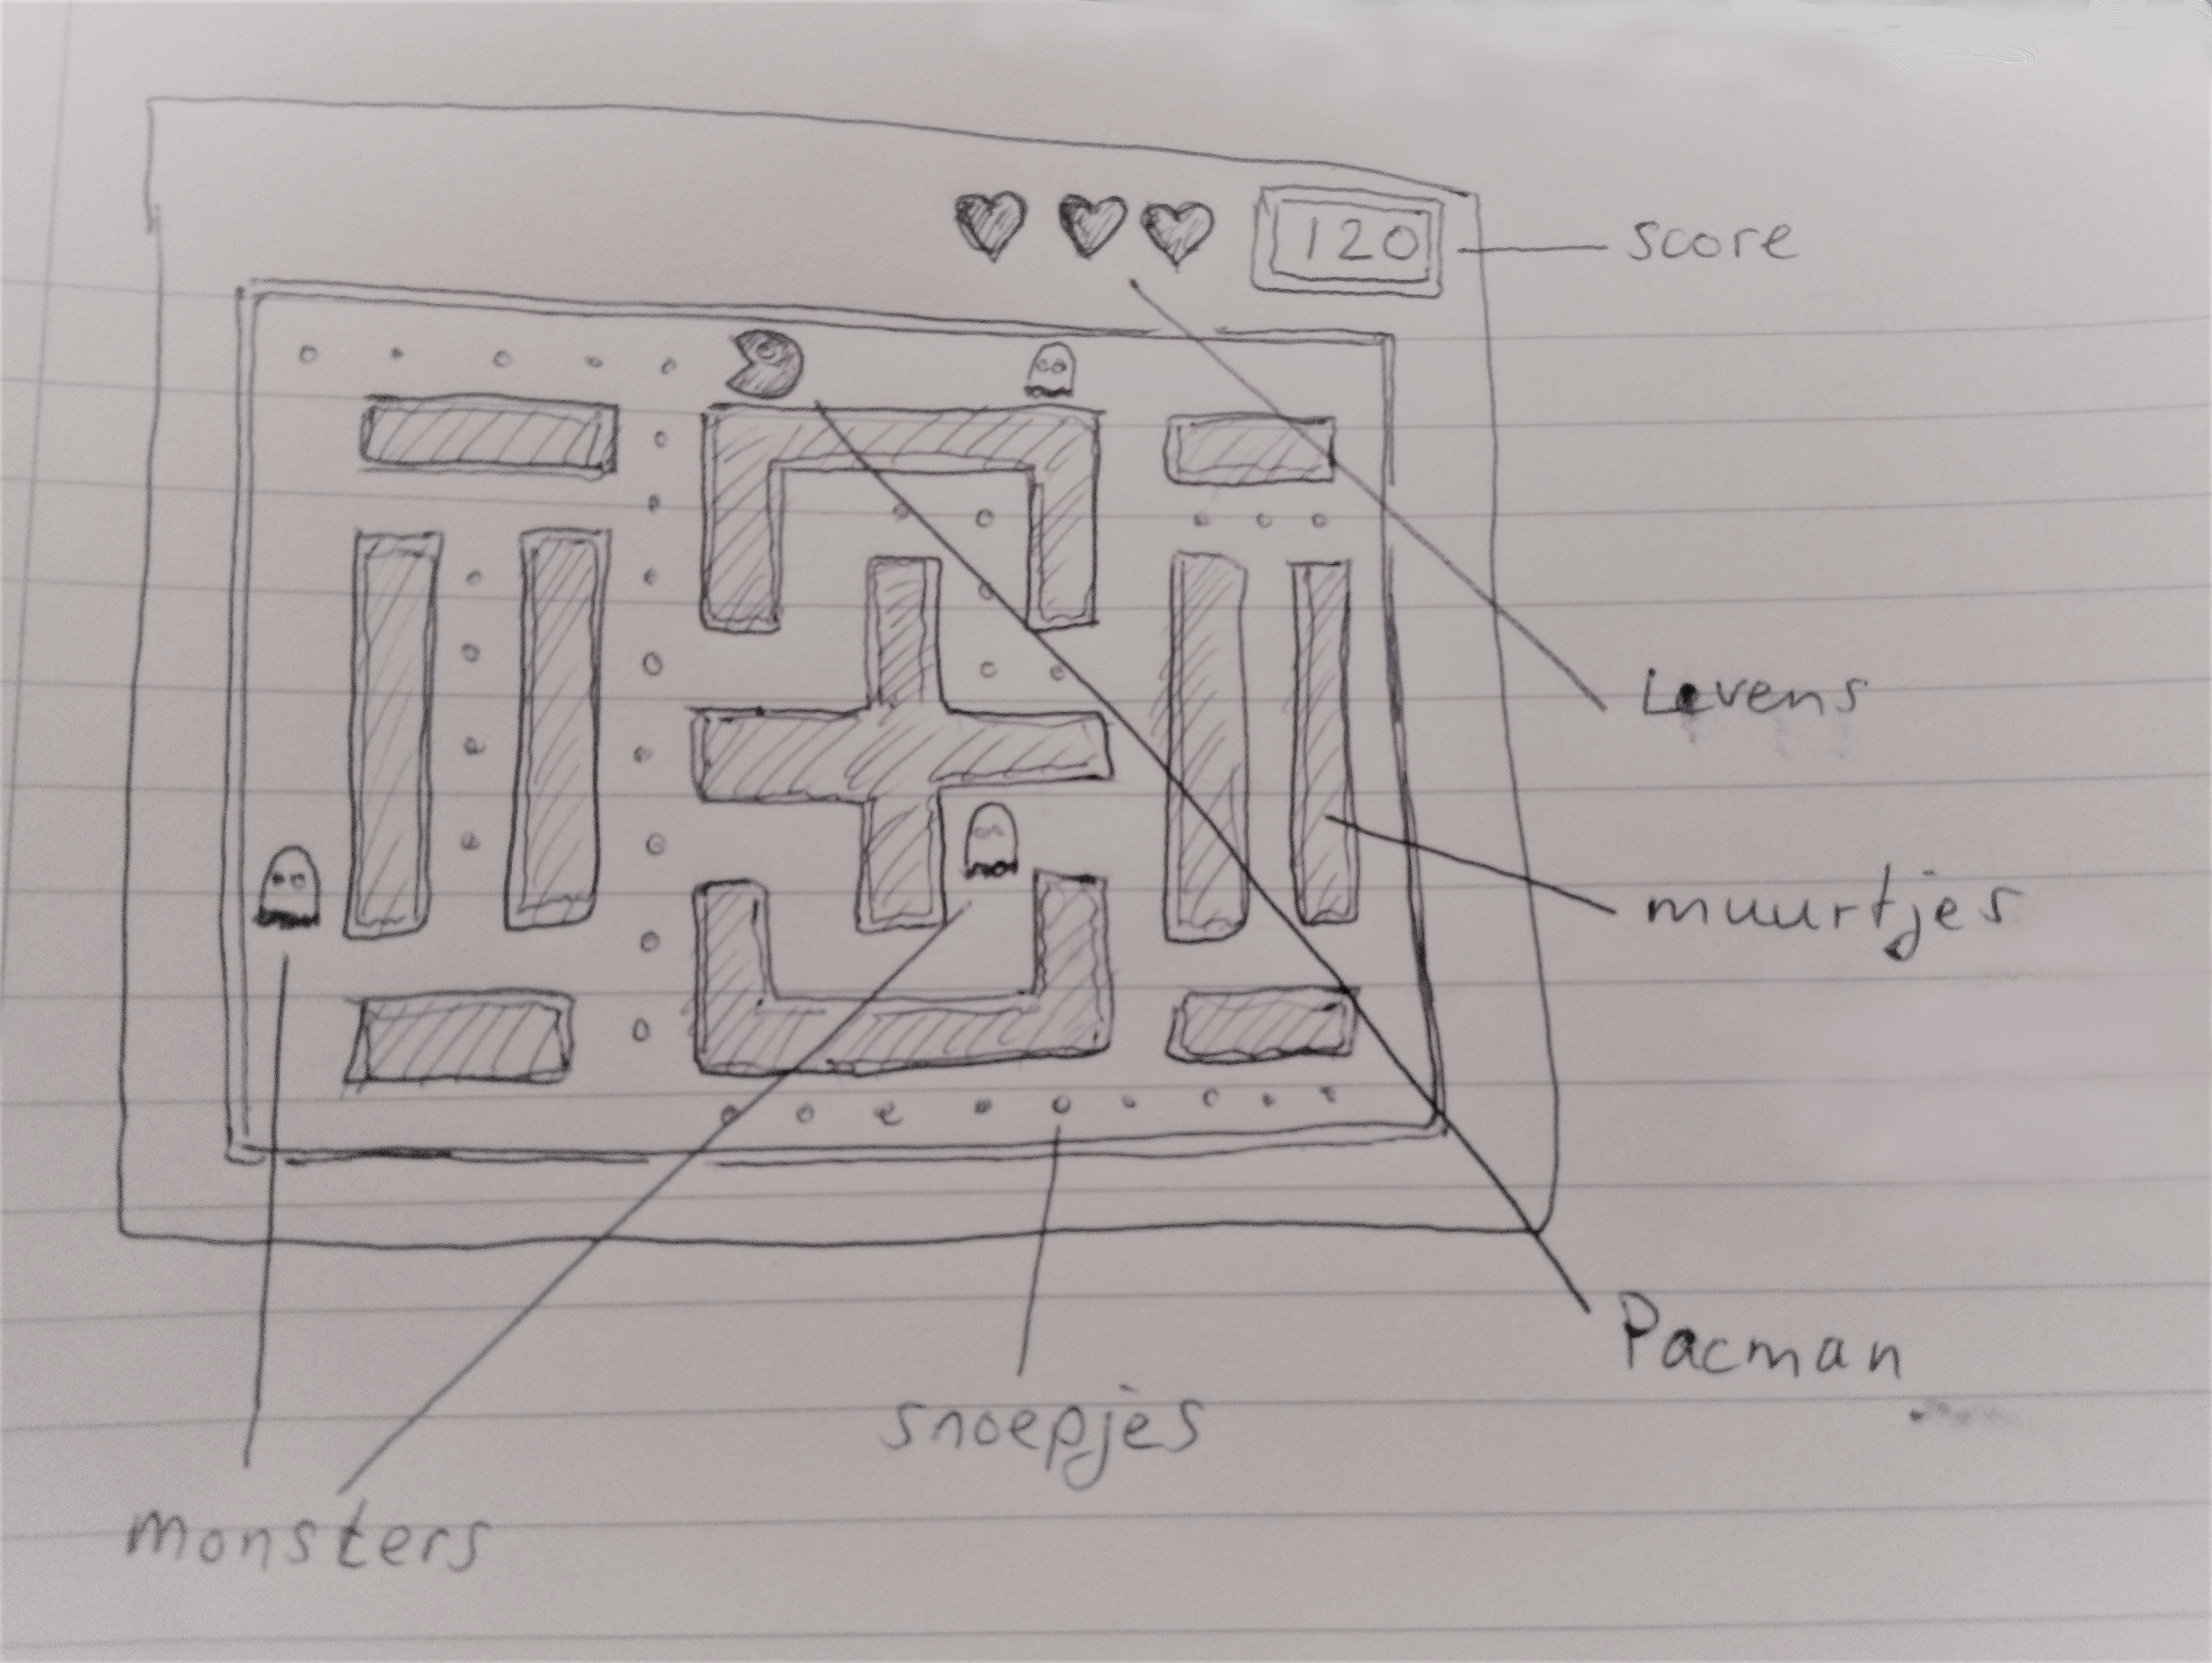 120
score
Levens
muurtjes
Pacman
snoepjes
monsters